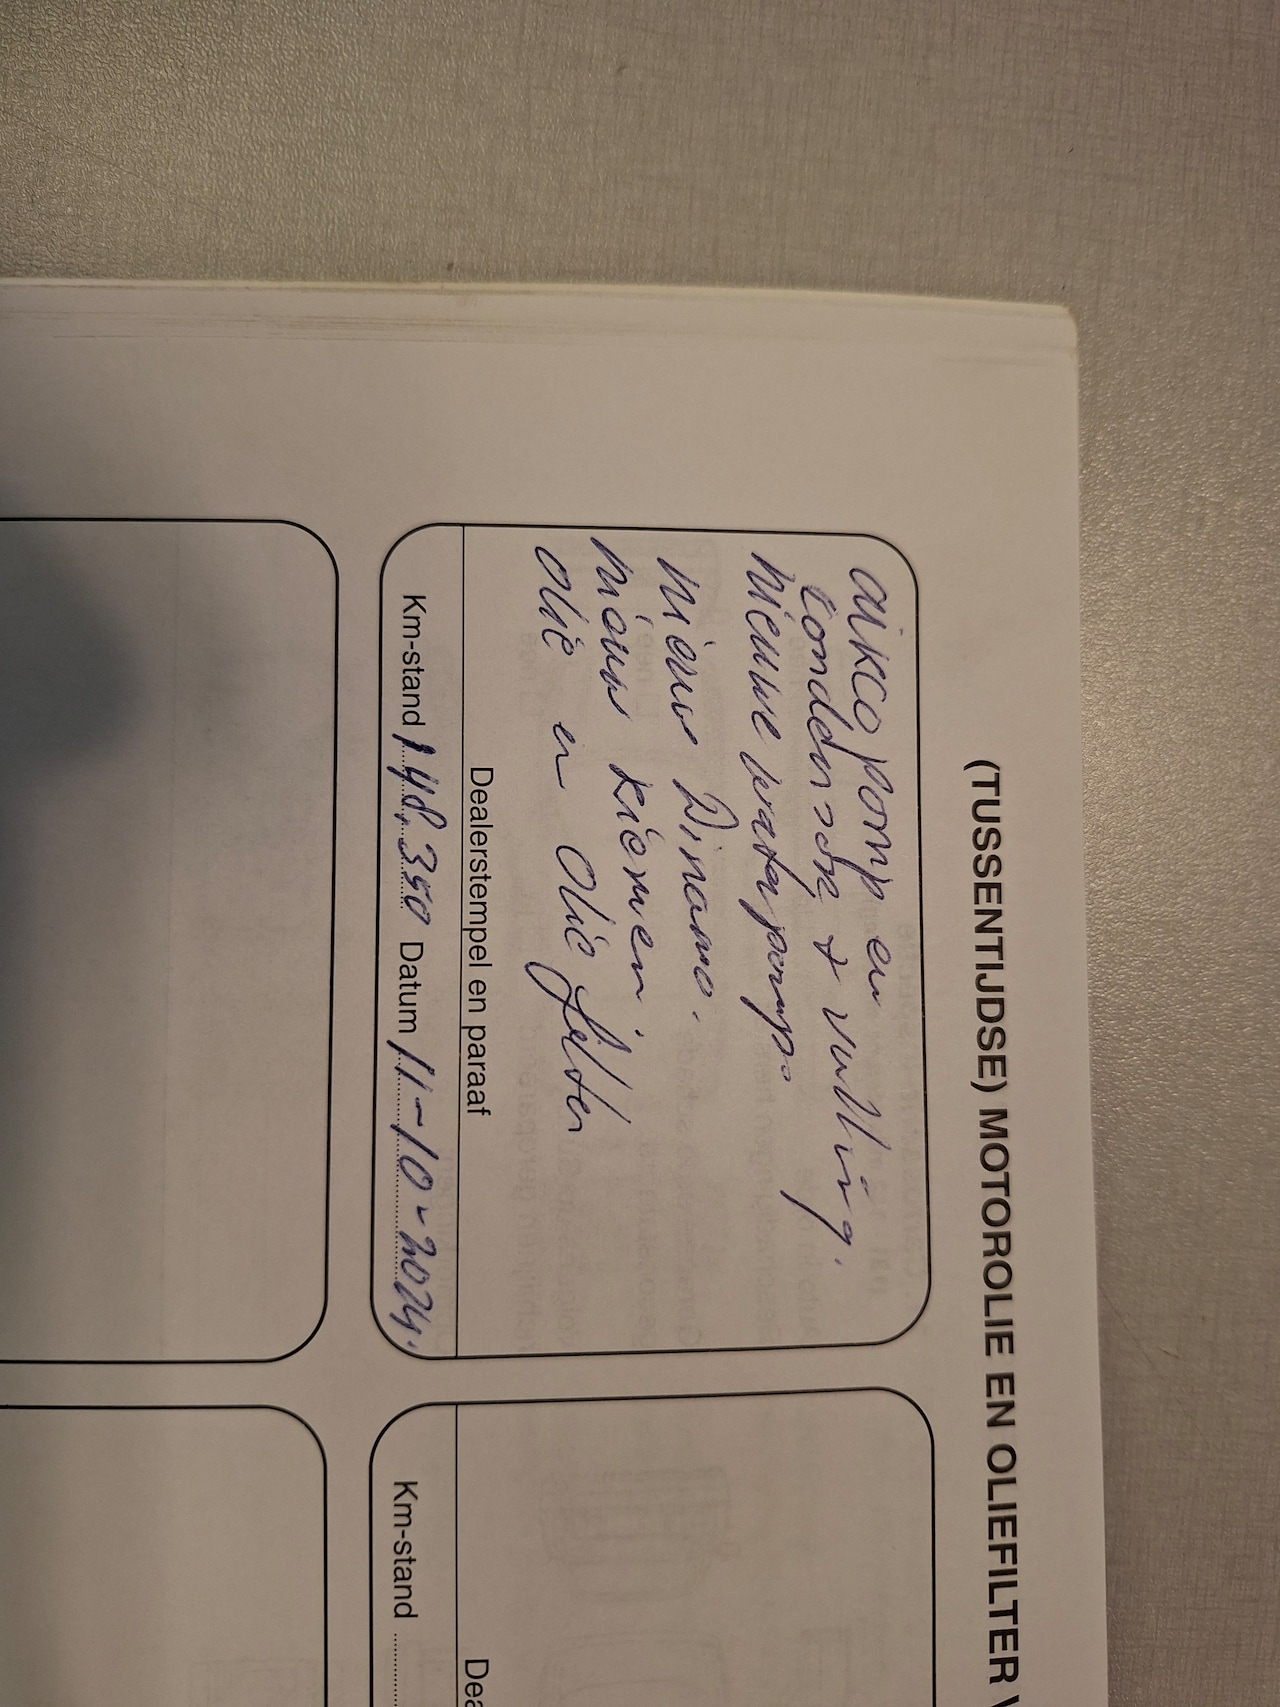 (TUSSENTIJDSE) MOTOROLIE EN OLIEFILTER V
airco pomp en
condensor + vulling.
nieuwe waterpomp
nieuw Dinamo.
nieuw riemen.
olie en olie filter
Dealerstempel en paraaf
Km-stand 148.350 Datum 11-10-2024.
Dea
Km-stand